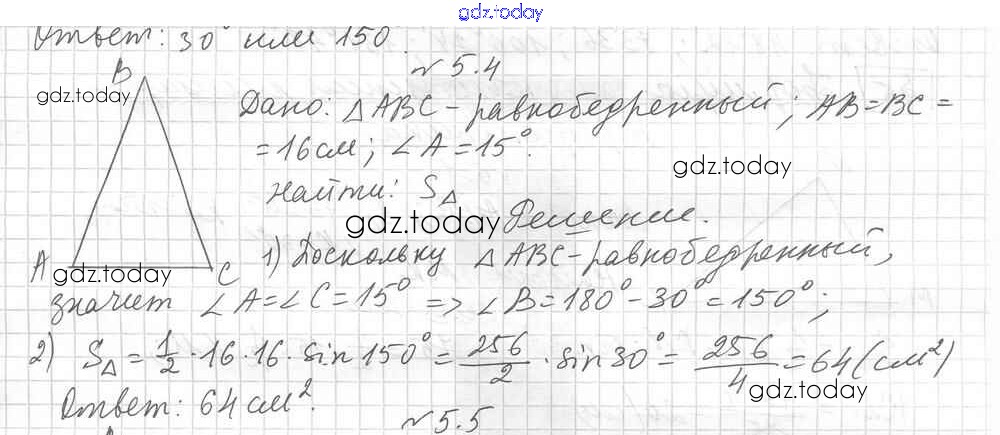 gdz.today
Ответ: 30° или 150.
№ 5.4
B
gdz.today
Дано: △ABC - равнобедренный; AB=BC=
=16см; ∠A=15°.
gdz.today
Найти: S△
gdz.today
Решение.
A
C
gdz.today
1) Поскольку △ABC-равнобедренный,
значит ∠A=∠C=15° => ∠B=180°-30°=150°;
2) S△ = 1/2 · 16 · 16 · sin 150° = 256/2 · sin 30° = 256/4 = 64 (см²)
gdz.today
Ответ: 64 см².
№ 5.5